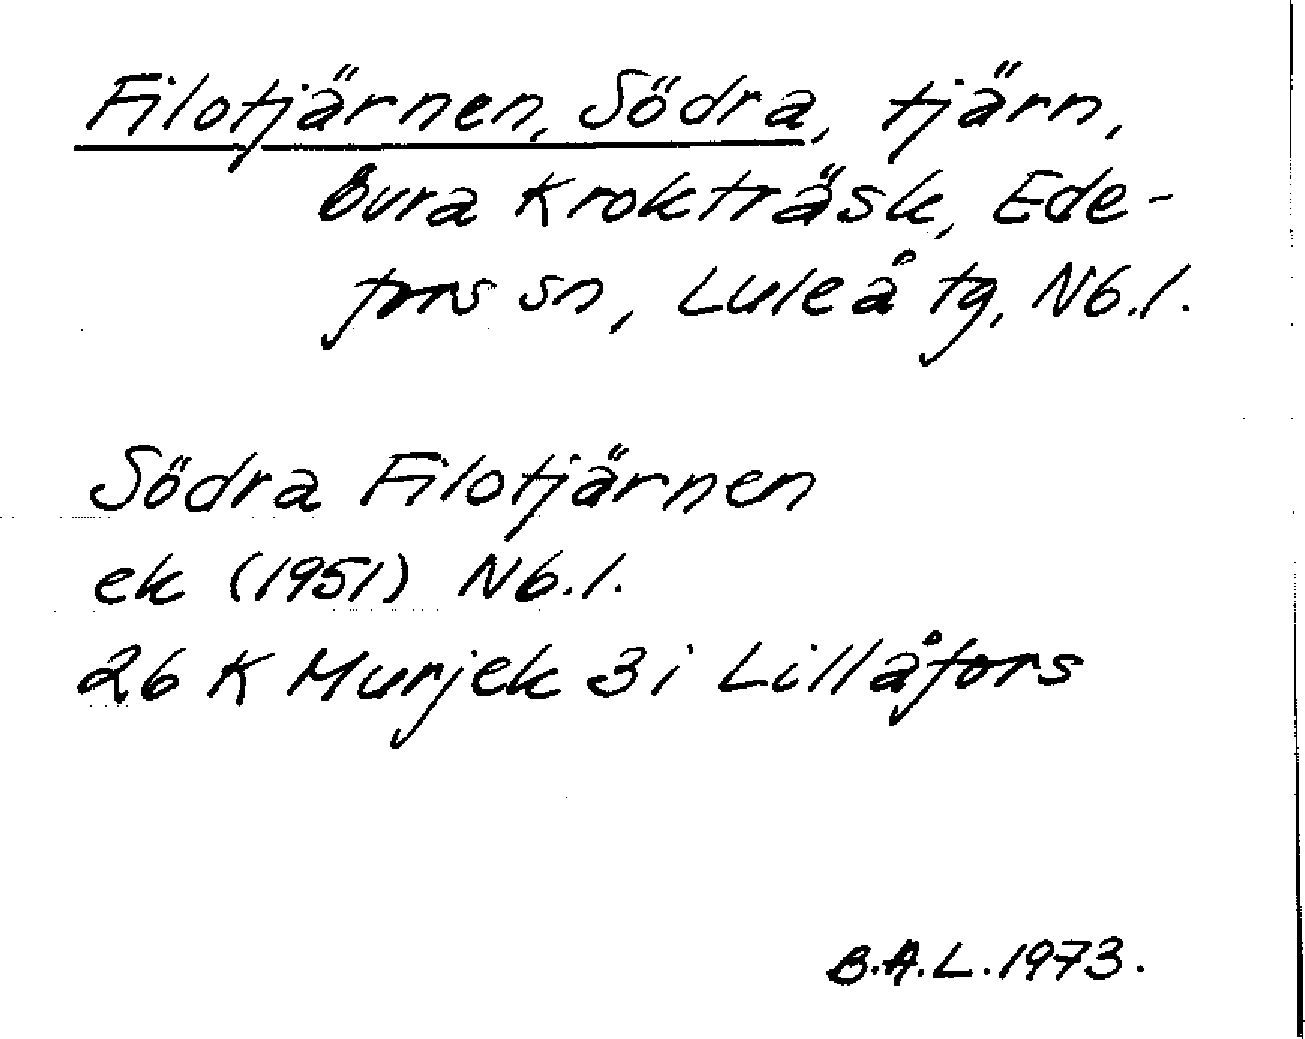 Filotjärnen, Södra, tjärn,
Övra Krokträsk, Ede-
fors sn, Luleå tg, Nb.l.
Södra Filotjärnen
ek (1951) Nb.l.
26 K Murjek 3i Lillåfors
B.A.L. 1973.